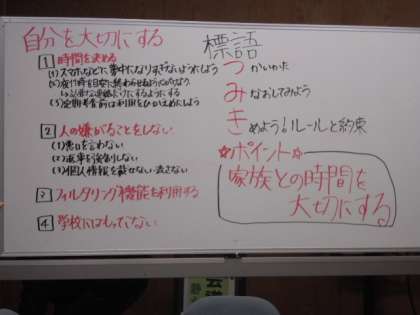 自分を大切にする
1 時間を決める
(1)スマホなどに夢中になりすぎないようにしよう
(2)夜11時を目安に終わらせるよう心がけよう
(3)定期考査前は利用をひかえめにしよう
2 人の嫌がることをしない
(1)悪口を言わない
(2)返事を強制しない
(3)個人情報を載せない・流さない
3 フィルタリング機能を利用する
4 学校にはもってこない
標語
つかいかた
みなおしてみよう
きめよう!ルールと約束
☆ポイント☆
家族との時間を
大切にする。